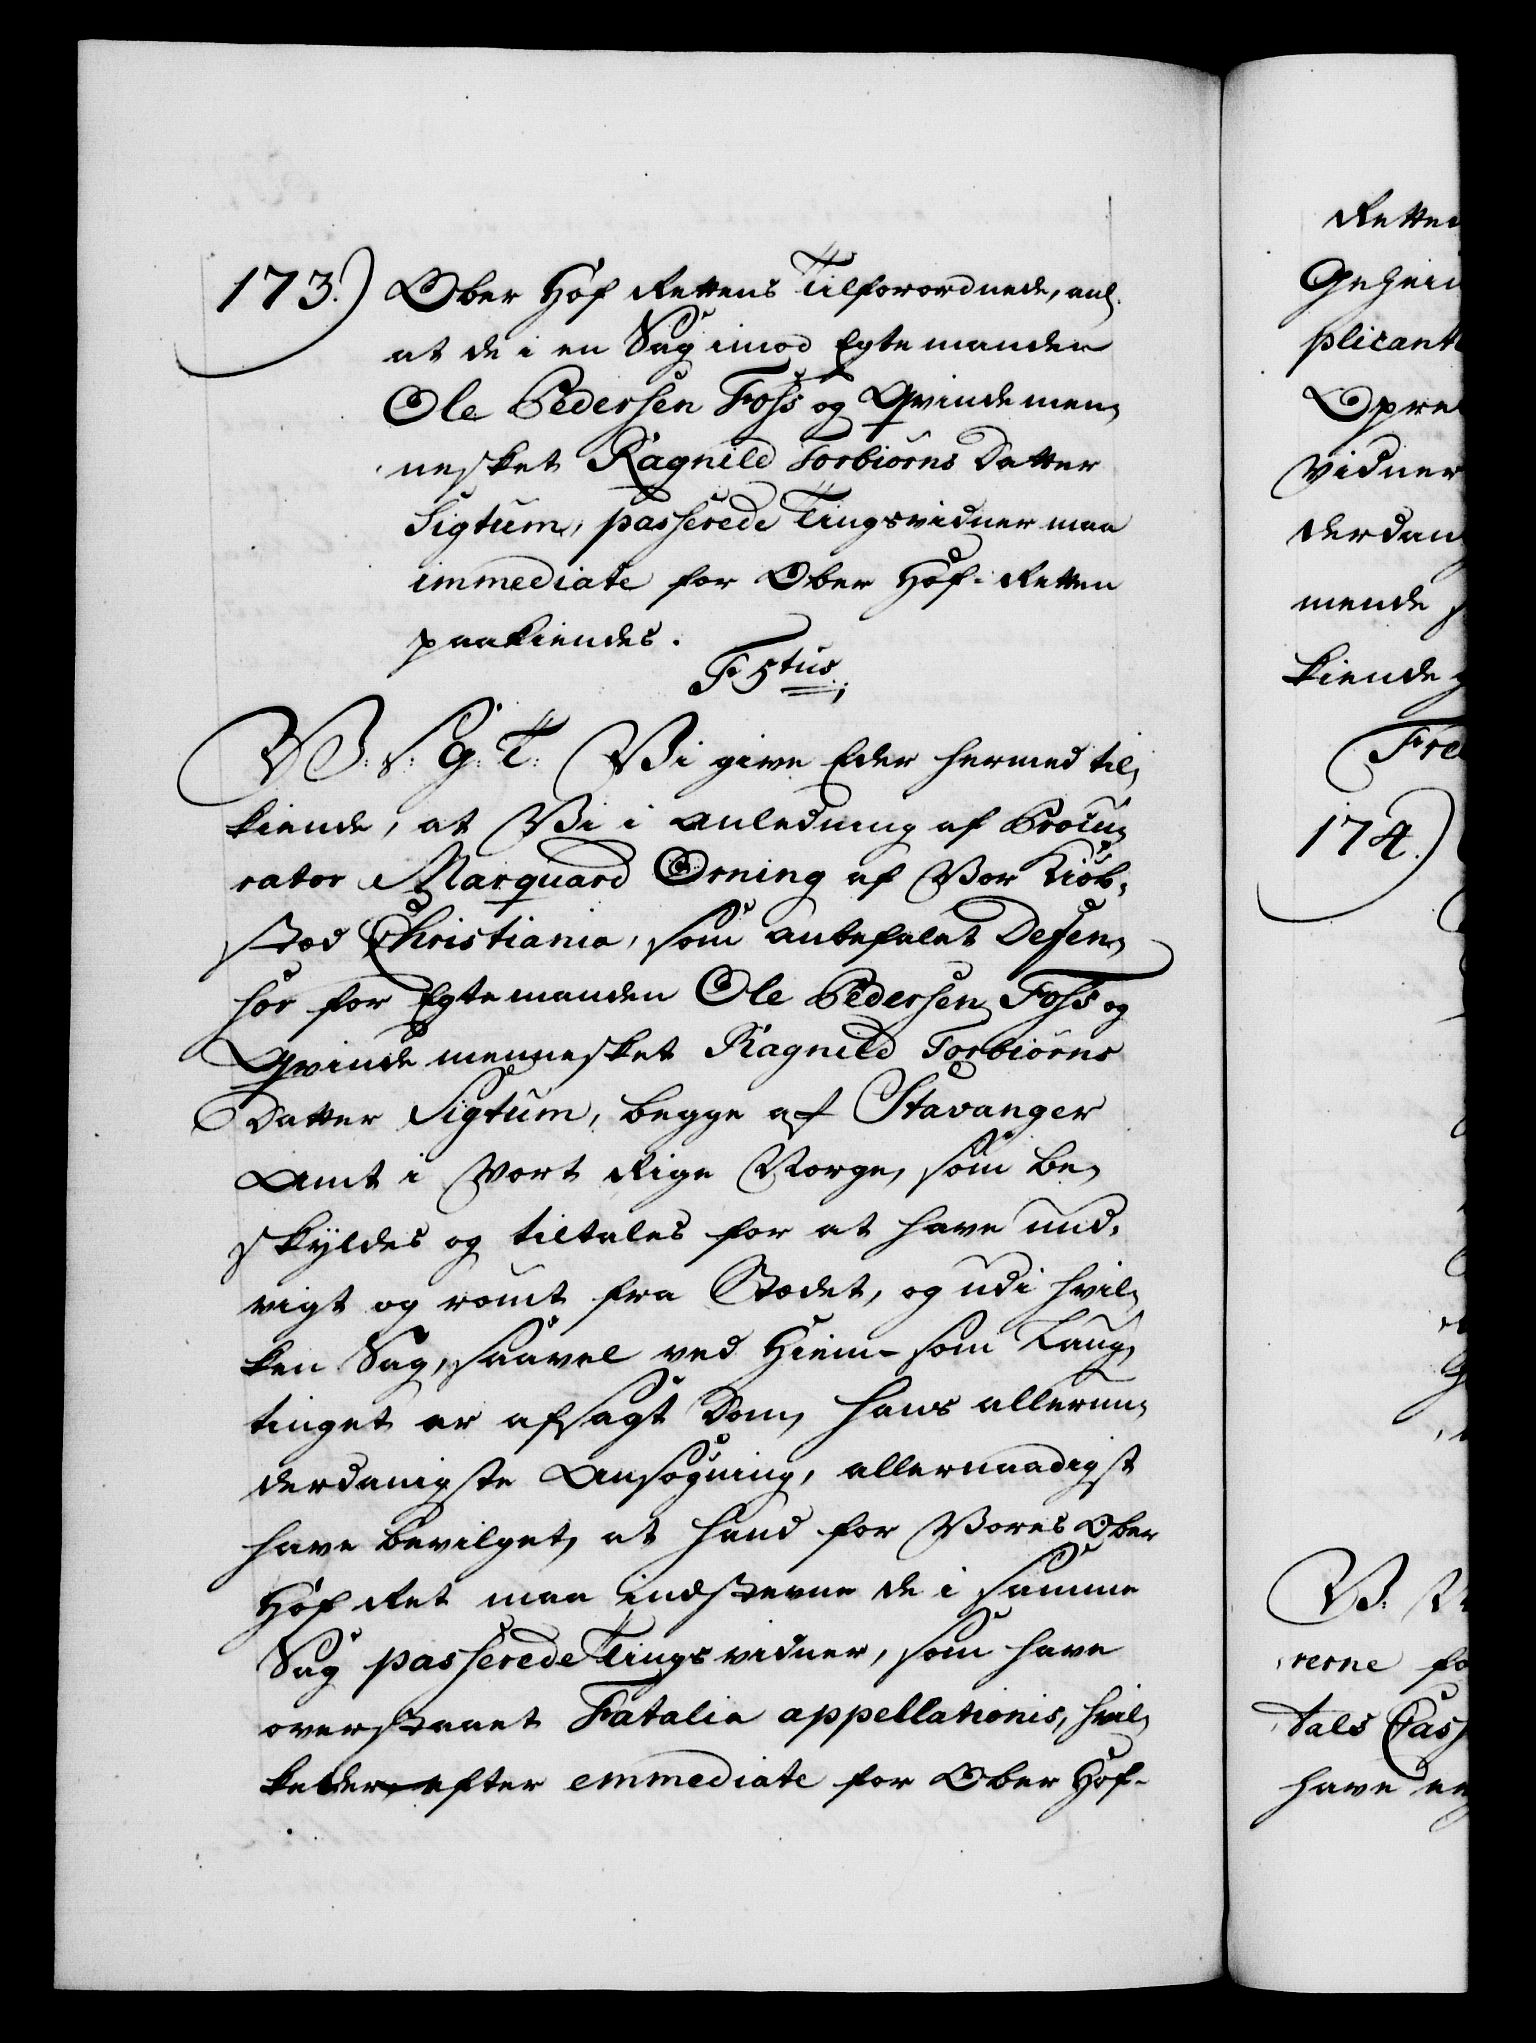 173.) Ober Hof Rettens Tilforordnede, anl.
at de i en Sag imod Egtemanden
Ole Pedersen Foss og Qvindemen,
nesket Ragnild Torbiørns Datter
Sigtum, passerede Tingsvidner maa
immediate for Ober Hof-Retten
paakiendes.
F 5tus.
V: S: G: T: Vi give Eder hermed til,
kiende, at Vi i Anledning af Procu,
rator Marquard Orning af Vor Kiøb,
stad Christiania, som anbefalet Defen,
sor for Egtemanden Ole Pedersen Foss og
Qvindemennesket Ragnild Torbiørns
Datter Sigtum, begge af Stavanger
Amt i Vort Rige Norge, som be,
skyldes og tiltales for at have und,
vigt og rømt fra Stedet, og udi hvil,
ken Sag, saavel ved Hiem- som Laug,
tinget er afsagt Dom, hans allerun,
derdanigste Ansøgning, allernaadigst
have bevilget, at hand for Vores Ober
Hof Ret maa indstevne de i samme
Sag passerede Tingsvidner, som have
overstaaet Fatalia appellationis, hvil,
ke derefter emmediate for Ober Hof-
Retten
Geheim
plicant
Opre
vidner
derdan
mende
kiende
Fre
174.)
V:
rerne fo
tals Cass
have